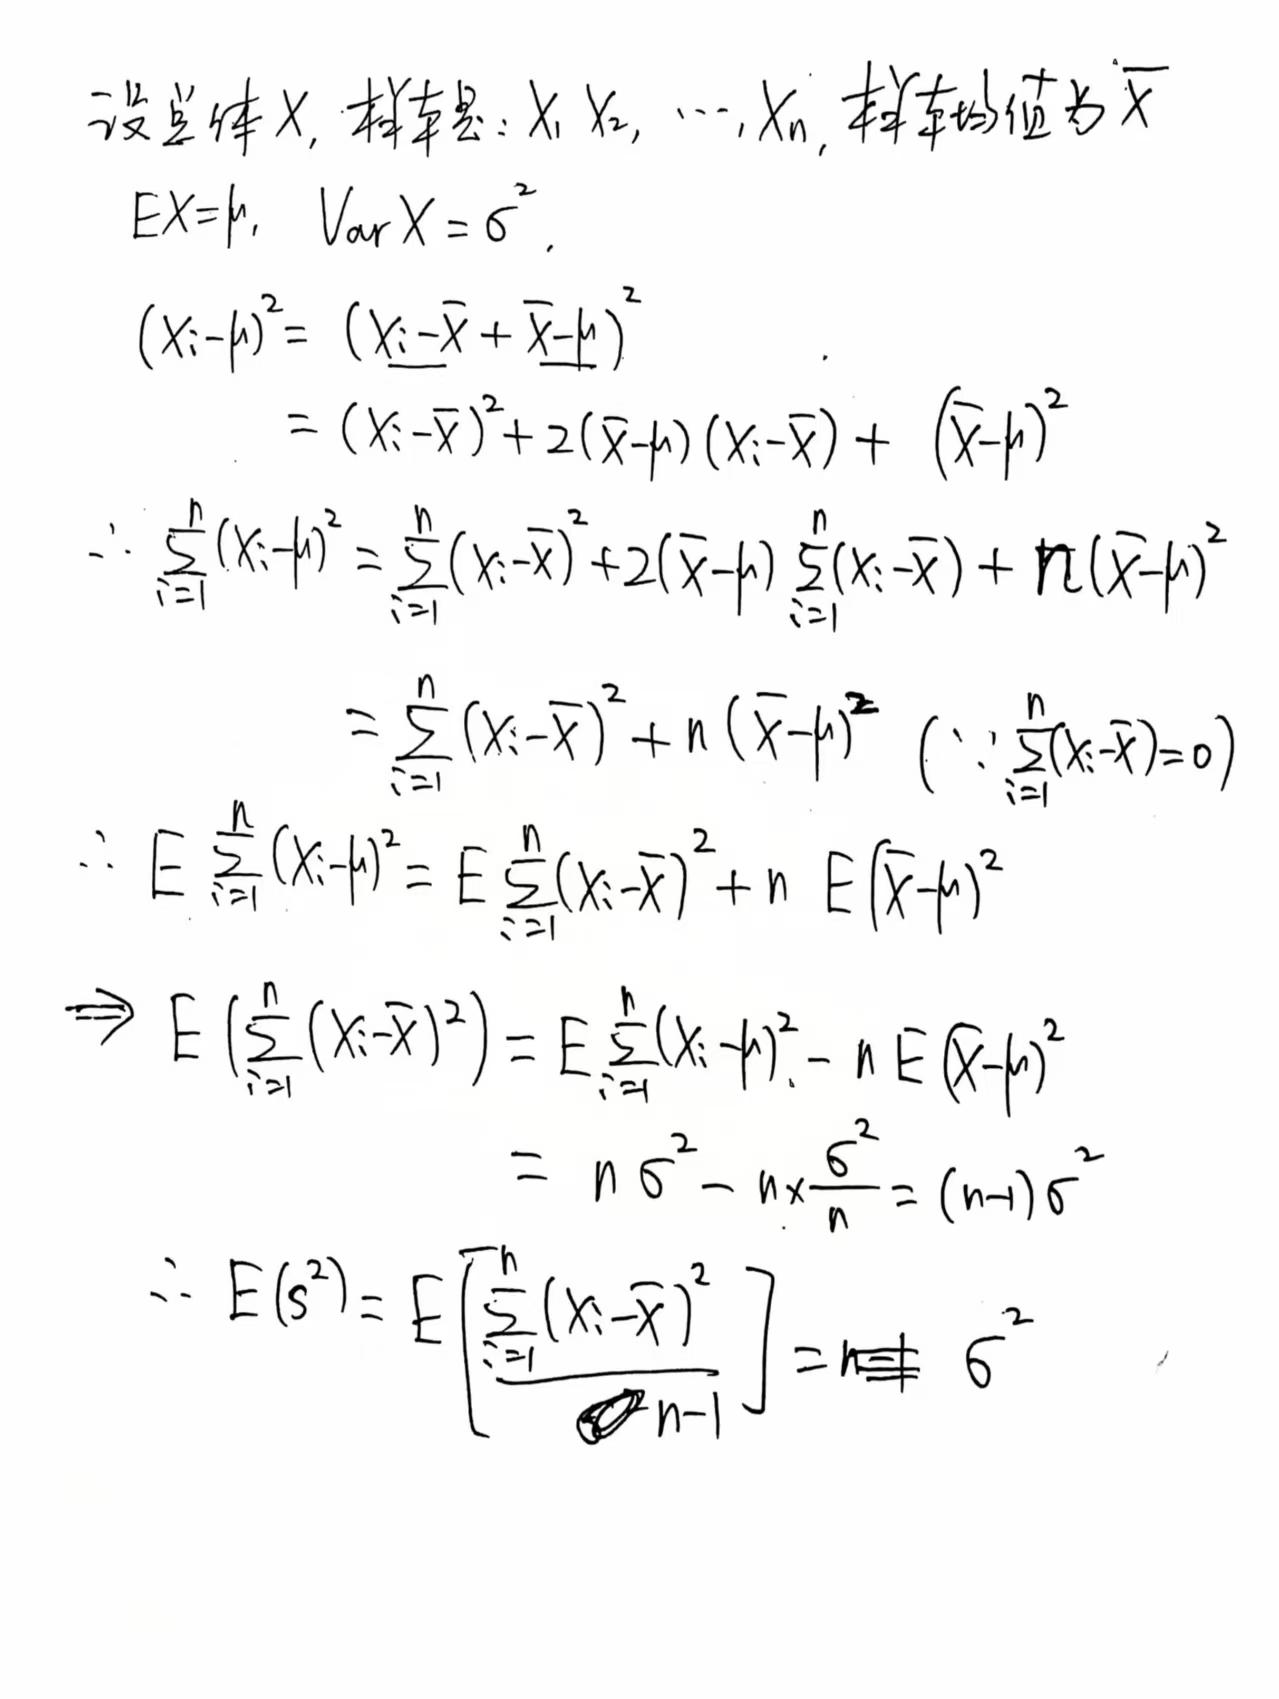 设总体 X, 样本是: X₁ X₂, ⋯, Xₙ, 样本均值为 X̄
EX=μ, Var X = σ².
(Xᵢ-μ)² = (Xᵢ-X̄ + X̄-μ)²
= (Xᵢ-X̄)² + 2(X̄-μ)(Xᵢ-X̄) + (X̄-μ)²
∴ ∑ᵢ₌₁ⁿ(Xᵢ-μ)² = ∑ᵢ₌₁ⁿ(Xᵢ-X̄)² + 2(X̄-μ) ∑ᵢ₌₁ⁿ(Xᵢ-X̄) + n(X̄-μ)²
= ∑ᵢ₌₁ⁿ(Xᵢ-X̄)² + n(X̄-μ)² (∵ ∑ᵢ₌₁ⁿ(Xᵢ-X̄)=0)
∴ E ∑ᵢ₌₁ⁿ(Xᵢ-μ)² = E ∑ᵢ₌₁ⁿ(Xᵢ-X̄)² + n E(X̄-μ)²
⇒ E(∑ᵢ₌₁ⁿ(Xᵢ-X̄)²) = E ∑ᵢ₌₁ⁿ(Xᵢ-μ)² - n E(X̄-μ)²
= nσ² - n×σ²/n = (n-1)σ²
∴ E(s²) = E[∑ᵢ₌₁ⁿ(Xᵢ-X̄)²/n-1] = σ²